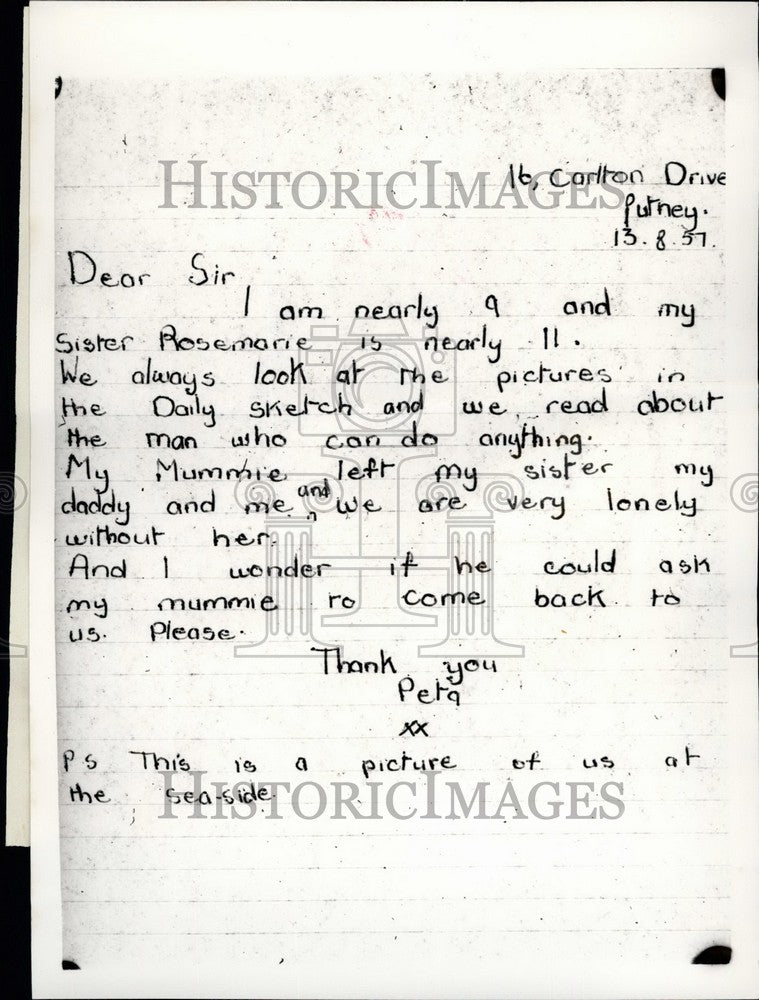 HISTORIC IMAGES
16, Carlton Drive
Putney.
13.8.57.
Dear Sir
I am nearly 9 and my
Sister Rosemarie is nearly 11.
We always look at the pictures in
the Daily sketch and we read about
the man who can do anything.
My Mummie left my sister my
daddy and me and we are very lonely
without her.
And I wonder if he could ask
my mummie to come back to
us. Please.
Thank you
Peta
xx
PS This is a picture of us at
the sea-side
HISTORIC IMAGES